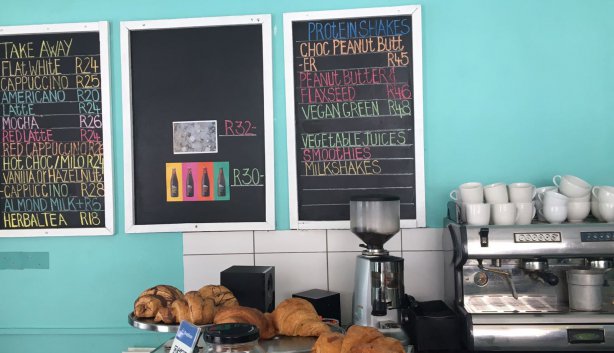 TAKE AWAY
FLAT WHITE R24
CAPPUCCINO R25
AMERICANO R20
LATTE R24
MOCHA R26
RED LATTE R24
RED CAPPUCCINO
HOT CHOC/MILO R24
VANILLA OR HAZELNUT
-CAPPUCCINO R28
ALMOND MILK +R6
HERBAL TEA R18
R32-
R30-
PROTEIN SHAKES
CHOC PEANUT BUTT
-ER R45
PEANUT BUTTER &
FLAXSEED R46
VEGAN GREEN R48
VEGETABLE JUICES
SMOOTHIES
MILKSHAKES